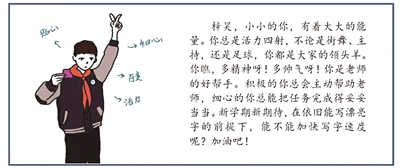 细心
活力
梓昊，小小的你，有着大大的能
量。你总是活力四射，不论是街舞、主
持，还是足球，你都是大家的领头羊。
你瞧，多精神呀！多帅气呀！你是老师
的好帮手。积极的你总会主动帮助老
师，细心的你总能把任务完成得妥妥
当当。新学期新期待，在依旧能写漂亮
字的前提下，能不能加快写字速度
呢？加油吧！